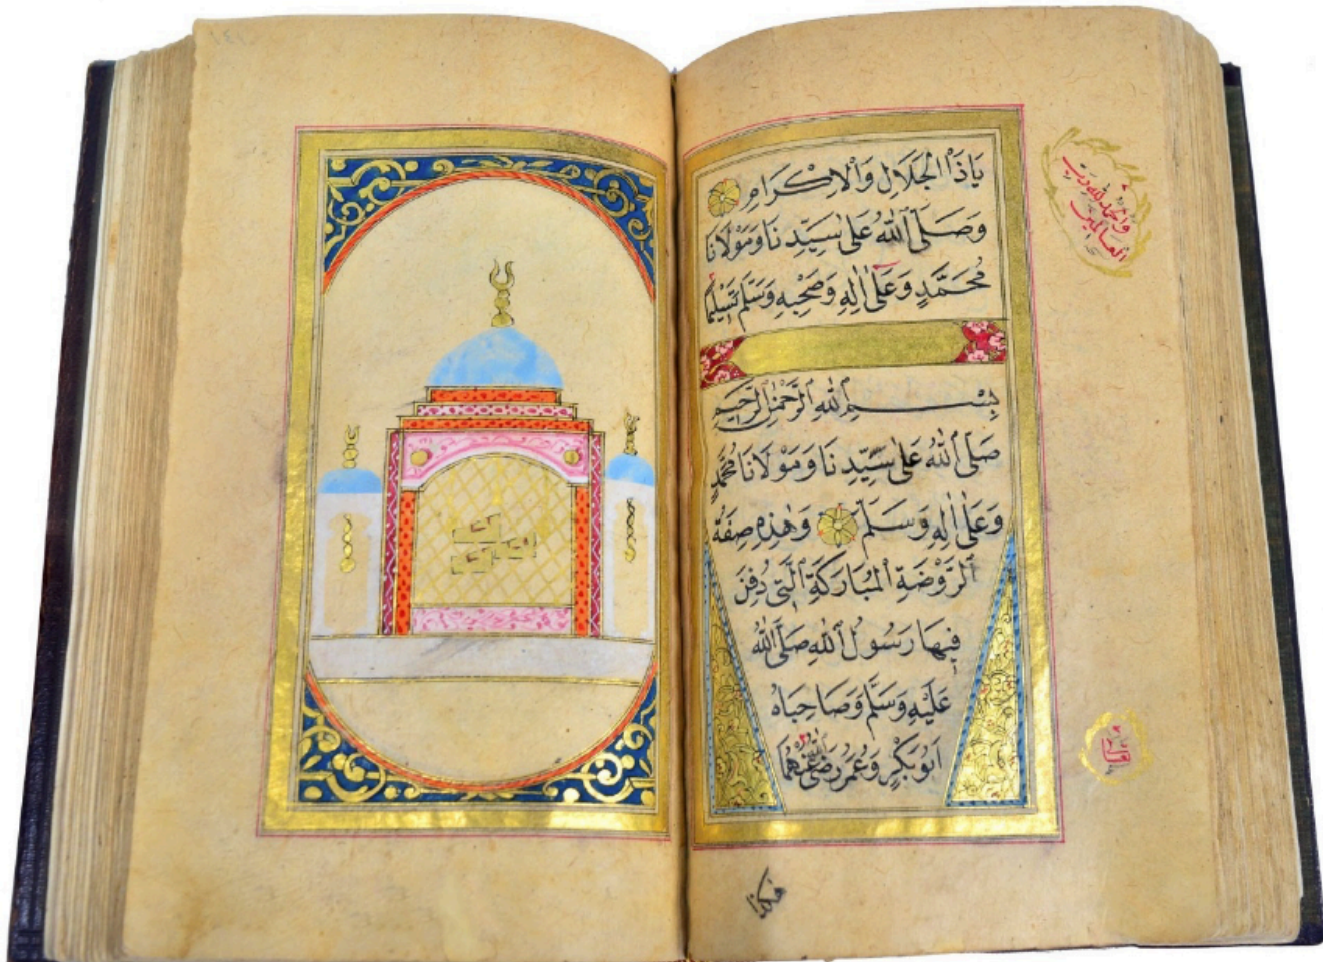 يَاذَا الْجَلَالِ وَالْاِكْرَامِ
وَصَلَّى اللّٰهُ عَلٰى سَيِّدِنَا وَمَوْلَانَا
مُحَمَّدٍ وَعَلٰى اٰلِهِ وَصَحْبِهِ وَسَلَّمَ تَسْلِيمًا
بِسْمِ اللّٰهِ الرَّحْمٰنِ الرَّحِيمِ
صَلَّى اللّٰهُ عَلٰى سَيِّدِنَا وَمَوْلَانَا مُحَمَّدٍ
وَعَلٰى اٰلِهِ وَسَلَّمَ وَهٰذِهِ صِفَةُ
الرَّوْضَةِ الْمُبَارَكَةِ الَّتِى دُفِنَ
فِيهَا رَسُولُ اللّٰهِ صَلَّى اللّٰهُ
عَلَيْهِ وَسَلَّمَ وَصَاحِبَاهُ
اَبُو بَكْرٍ وَعُمَرُ رَضِىَ اللّٰهُ عَنْهُمَا
وَالْحَمْدُ لِلّٰهِ رَبِّ
الْعَالَمِينَ
هكذا